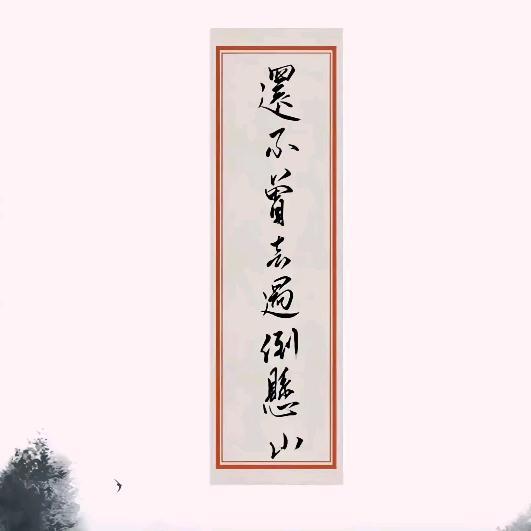 還不曾去過倒懸山